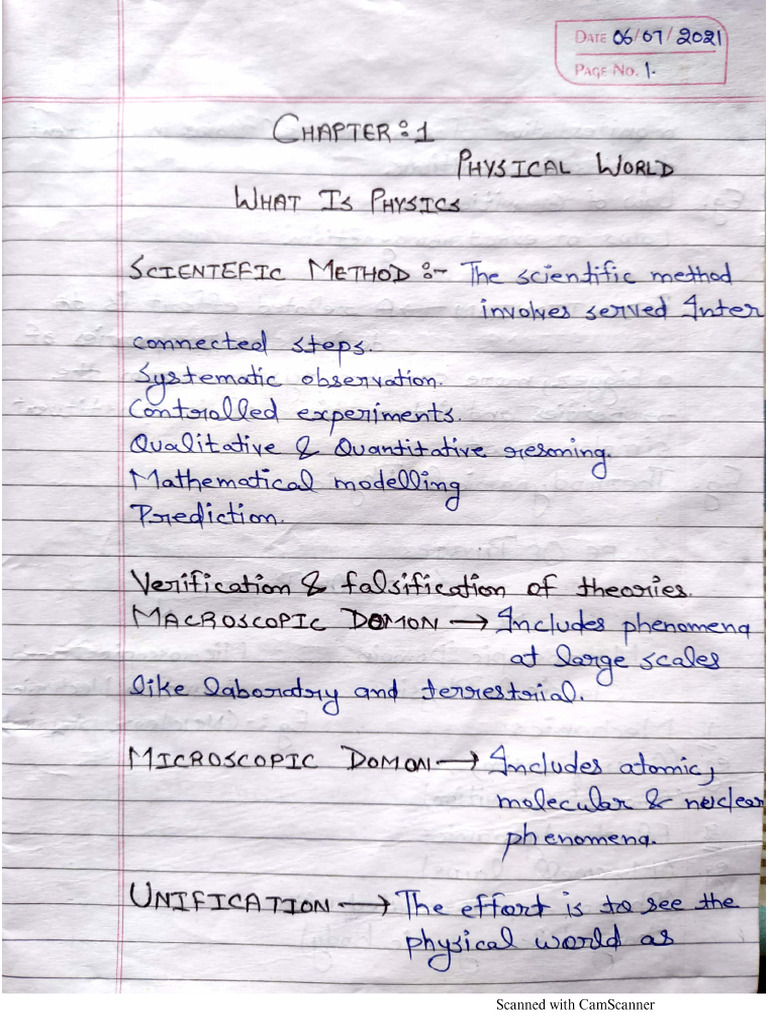 DATE 06/07/2021
PAGE NO. 1.
CHAPTER:1
PHYSICAL WORLD
WHAT IS PHYSICS
SCIENTEFIC METHOD :- The scientific method
involves served Inter
connected steps.
Systematic observation.
Controlled experiments.
Qualitative & Quantitative resoning.
Mathematical modelling
Prediction.
Verification & falsification of theories.
MACROSCOPIC DOMON → Includes phenomena
at large scales
like laboratry and terrestrial.
MICROSCOPIC DOMON → Includes atomic,
molecular & nuclear
phenomena.
UNIFICATION → The effort is to see the
physical world as
Scanned with CamScanner